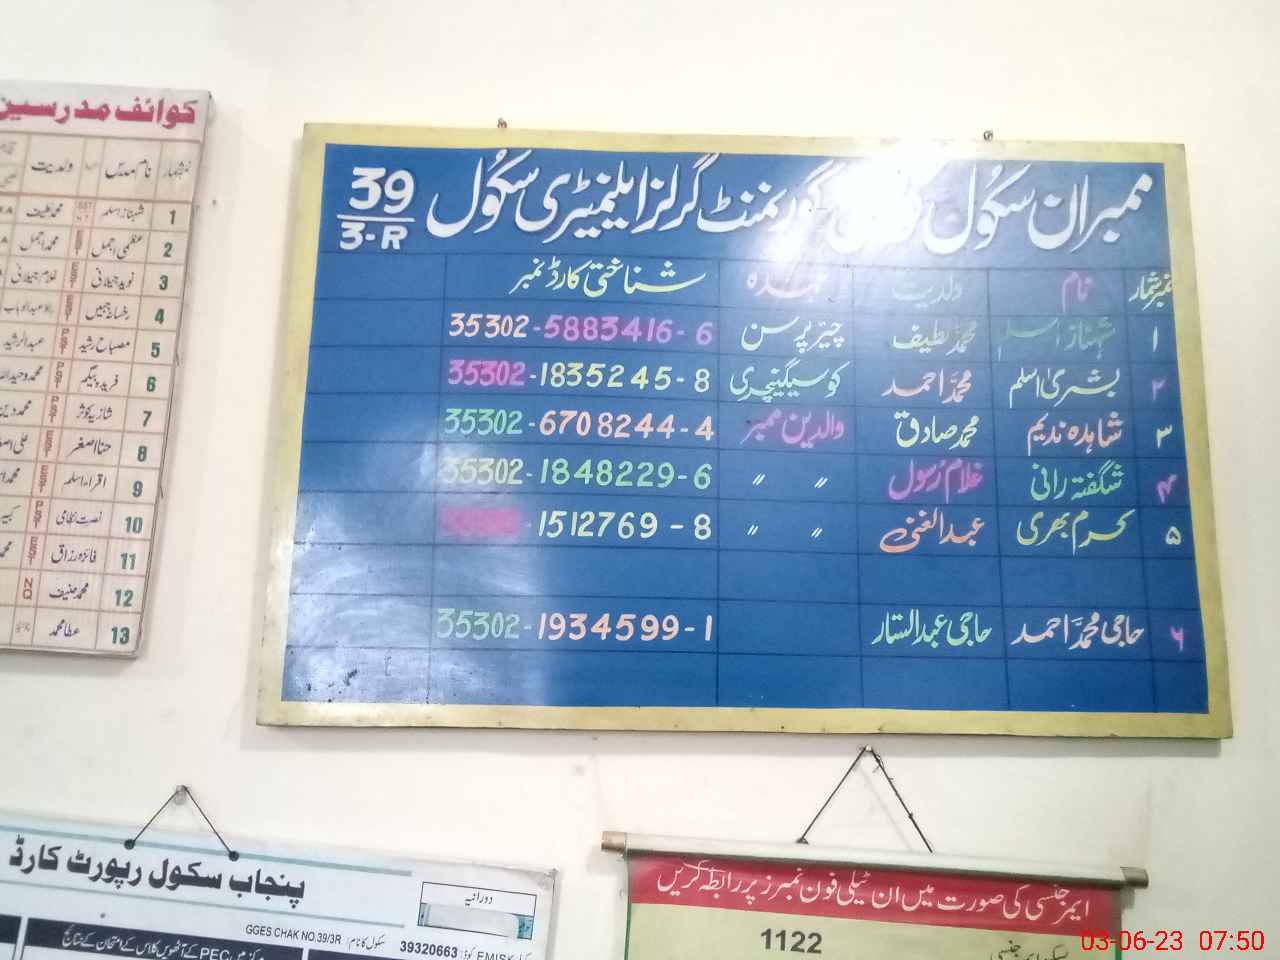 ممبران سکول گورنمنٹ گرلز ایلیمنٹری سکول 39/3-R
نمبر شمار نام ولدیت عہدہ شناختی کارڈ نمبر
1 شہناز اسلم محمد لطیف چیئرپرسن 35302-5883416-6
۲ بشریٰ اسلم محمد احمد کو سیگنیچری 35302-1835245-8
۳ شاہدہ ندیم محمد صادق والدین ممبر 35302-6708244-4
۴ شگفتہ رانی غلام رسول 〃 〃 35302-1848229-6
۵ کرم بھری عبدالغنی 〃 〃 -1512769-8
۶ حاجی محمد احمد حاجی عبدالستار 35302-1934599-1
کوائف مدرسین
نمبر شمار نام مدرس ولدیت
1 شہناز اسلم SST محمد لطیف
2 عظمیٰ اجمل EST محمد اجمل
3 نوید جیلانی EST غلام جیلانی
4 رخسانہ جبیں EST
5 مصباح رشید PST عبدالرشید
6 فریدہ بیگم PST
7 شازیہ کوثر PST محمد دین
8 حنا اصغر EST علی اصغر
9 اقراء اسلم EST
10 PST
11 فائزہ رزاق EST
12 محمد حنیف NQ
13 عطا محمد
پنجاب سکول رپورٹ کارڈ
دورانیہ
سکول کا نام: GGES CHAK NO.39/3R
EMIS کوڈ: 39320663
ایمرجنسی کی صورت میں ان ٹیلی فون نمبرز پر رابطہ کریں
1122
03-06-23 07:50